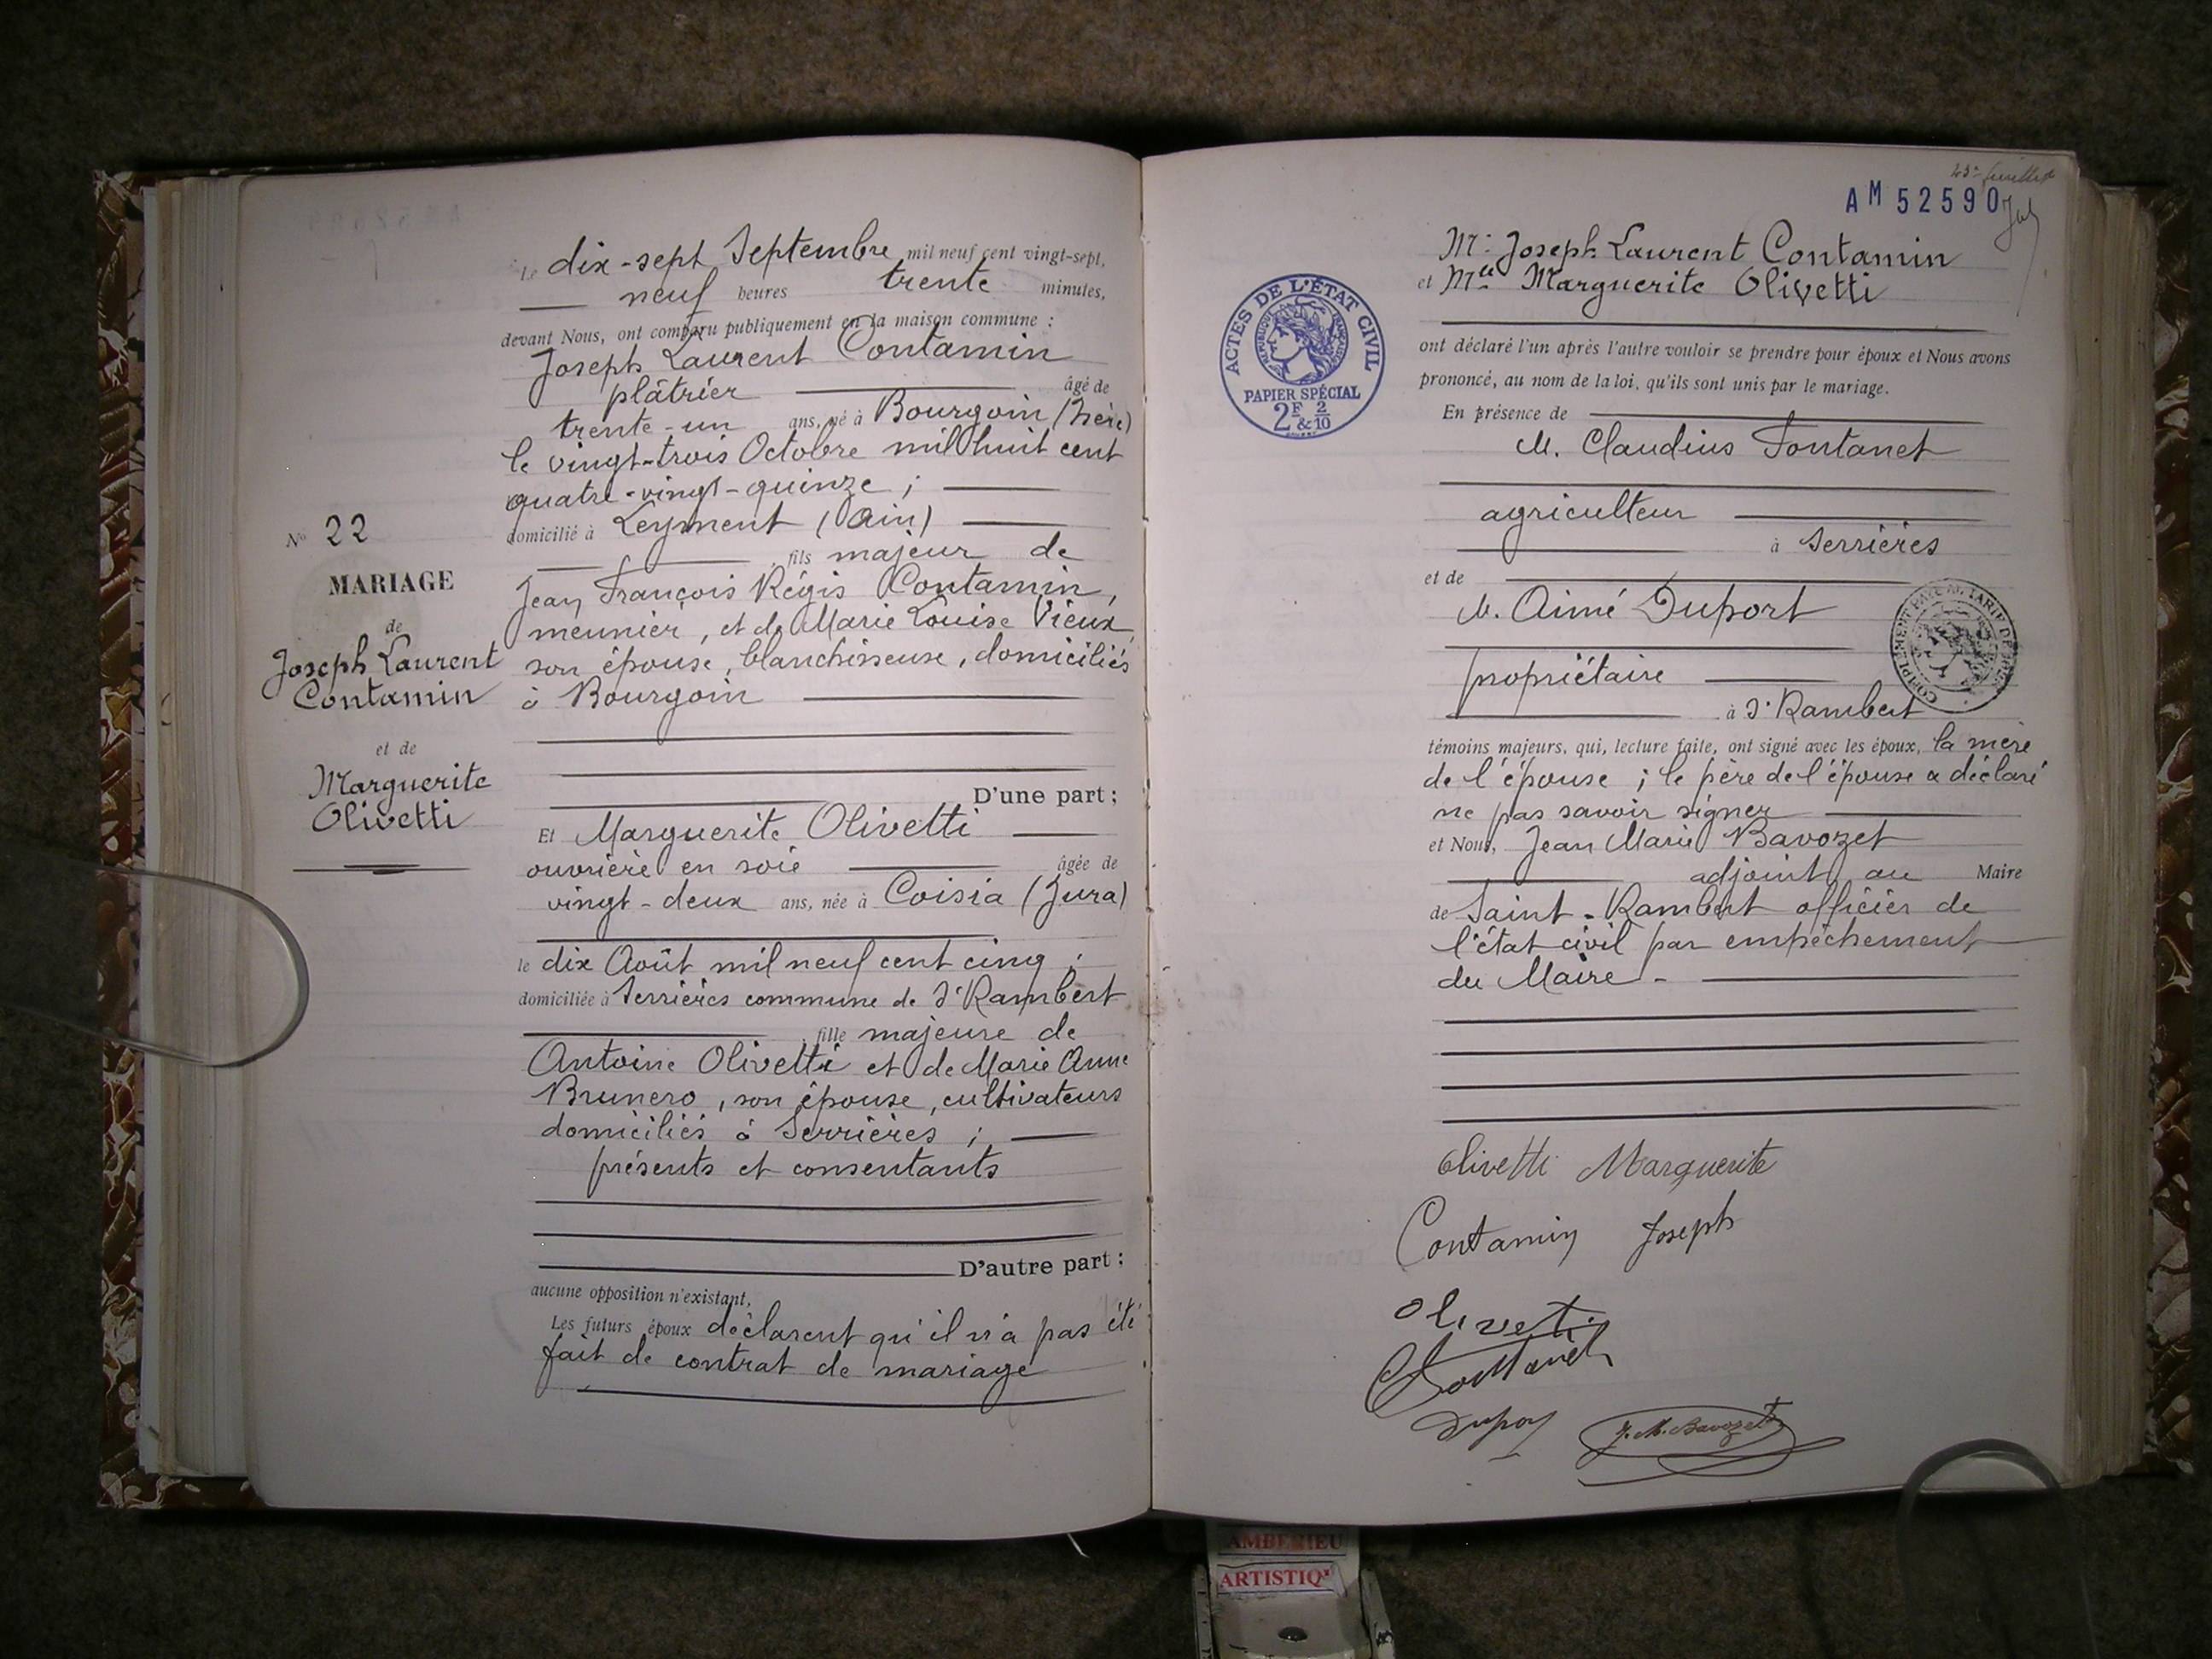 N° 22
MARIAGE
de
Joseph Laurent
Contamin
et de
Marguerite
Olivetti
Le dix-sept Septembre mil neuf cent vingt-sept,
neuf heures trente minutes,
devant Nous, ont comparu publiquement en la maison commune :
Joseph Laurent Contamin
plâtrier âgé de
trente-un ans, né à Bourgoin (Isère)
le vingt-trois Octobre mil huit cent
quatre-vingt-quinze ;
domicilié à Leyment (Ain)
, fils majeur de
Jean François Régis Contamin,
meunier, et de Marie Louise Vieux,
son épouse, blanchisseuse, domiciliés
à Bourgoin
D'une part ;
Et Marguerite Olivetti
ouvrière en soie âgée de
vingt-deux ans, née à Coisia (Jura)
le dix Août mil neuf cent cinq ;
domiciliée à Serrières commune de St Rambert
, fille majeure de
Antoine Olivetti et de Marie Anne
Brunero, son épouse, cultivateurs
domiciliés à Serrières ;
présents et consentants
D'autre part ;
aucune opposition n'existant,
Les futurs époux déclarent qu'il n'a pas été
fait de contrat de mariage
23e feuillet
AM 52590
Mr Joseph Laurent Contamin
et Mlle Marguerite Olivetti
ACTES DE L'ÉTAT CIVIL
RÉPUBLIQUE FRANÇAISE
PAPIER SPÉCIAL
2F & 2/10
ont déclaré l'un après l'autre vouloir se prendre pour époux et Nous avons
prononcé, au nom de la loi, qu'ils sont unis par le mariage.
En présence de
M. Claudius Fontanet
agriculteur
à Serrières
et de
M. Aimé Duport
propriétaire
à St Rambert
témoins majeurs, qui, lecture faite, ont signé avec les époux, la mère
de l'épouse ; le père de l'épouse a déclaré
ne pas savoir signer
et Nous, Jean Marie Bavozet
adjoint au Maire
de Saint-Rambert officier de
l'état civil par empêchement
du Maire -
Olivetti Marguerite
Contamin Joseph
Oliveti
Fontanet
Duport
J. M. Bavozet
AMBERIEU
ARTISTIQ